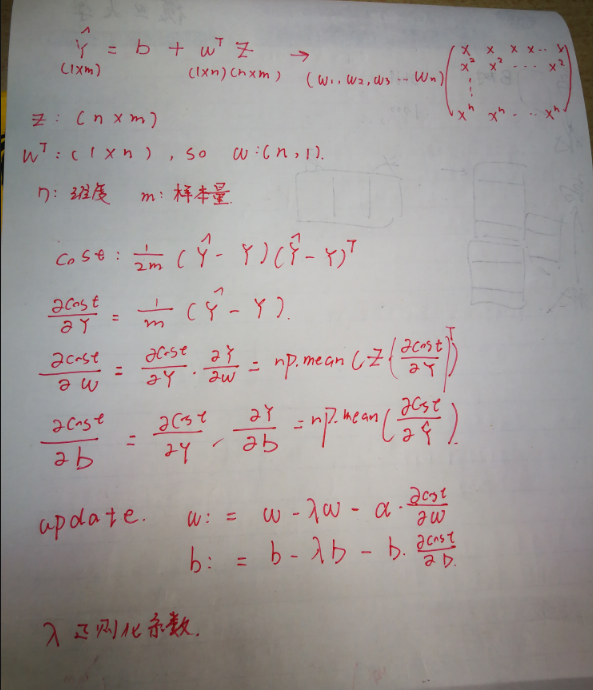 Ŷ = b + wᵀ Z → (w₁, w₂, w₃ ... wₙ) (x x x x .. x
(1×m) (1×n)(n×m) x² x² ... x²
⋮
xⁿ xⁿ ... xⁿ)
Z: (n×m)
wᵀ: (1×n), so w:(n,1).
n: 维度 m: 样本量.
cost: 1/2m (Ŷ - Y)(Ŷ - Y)ᵀ
∂cost/∂Y = 1/m (Ŷ - Y).
∂cost/∂w = ∂cost/∂Y · ∂Y/∂w = np.mean(Z(∂cost/∂Y)ᵀ)
∂cost/∂b = ∂cost/∂Y · ∂Y/∂b = np.mean(∂cost/∂Ŷ).
update. w: = w - λw - α·∂cost/∂w
b: = b - λb - b·∂cost/∂b.
λ 正则化系数.